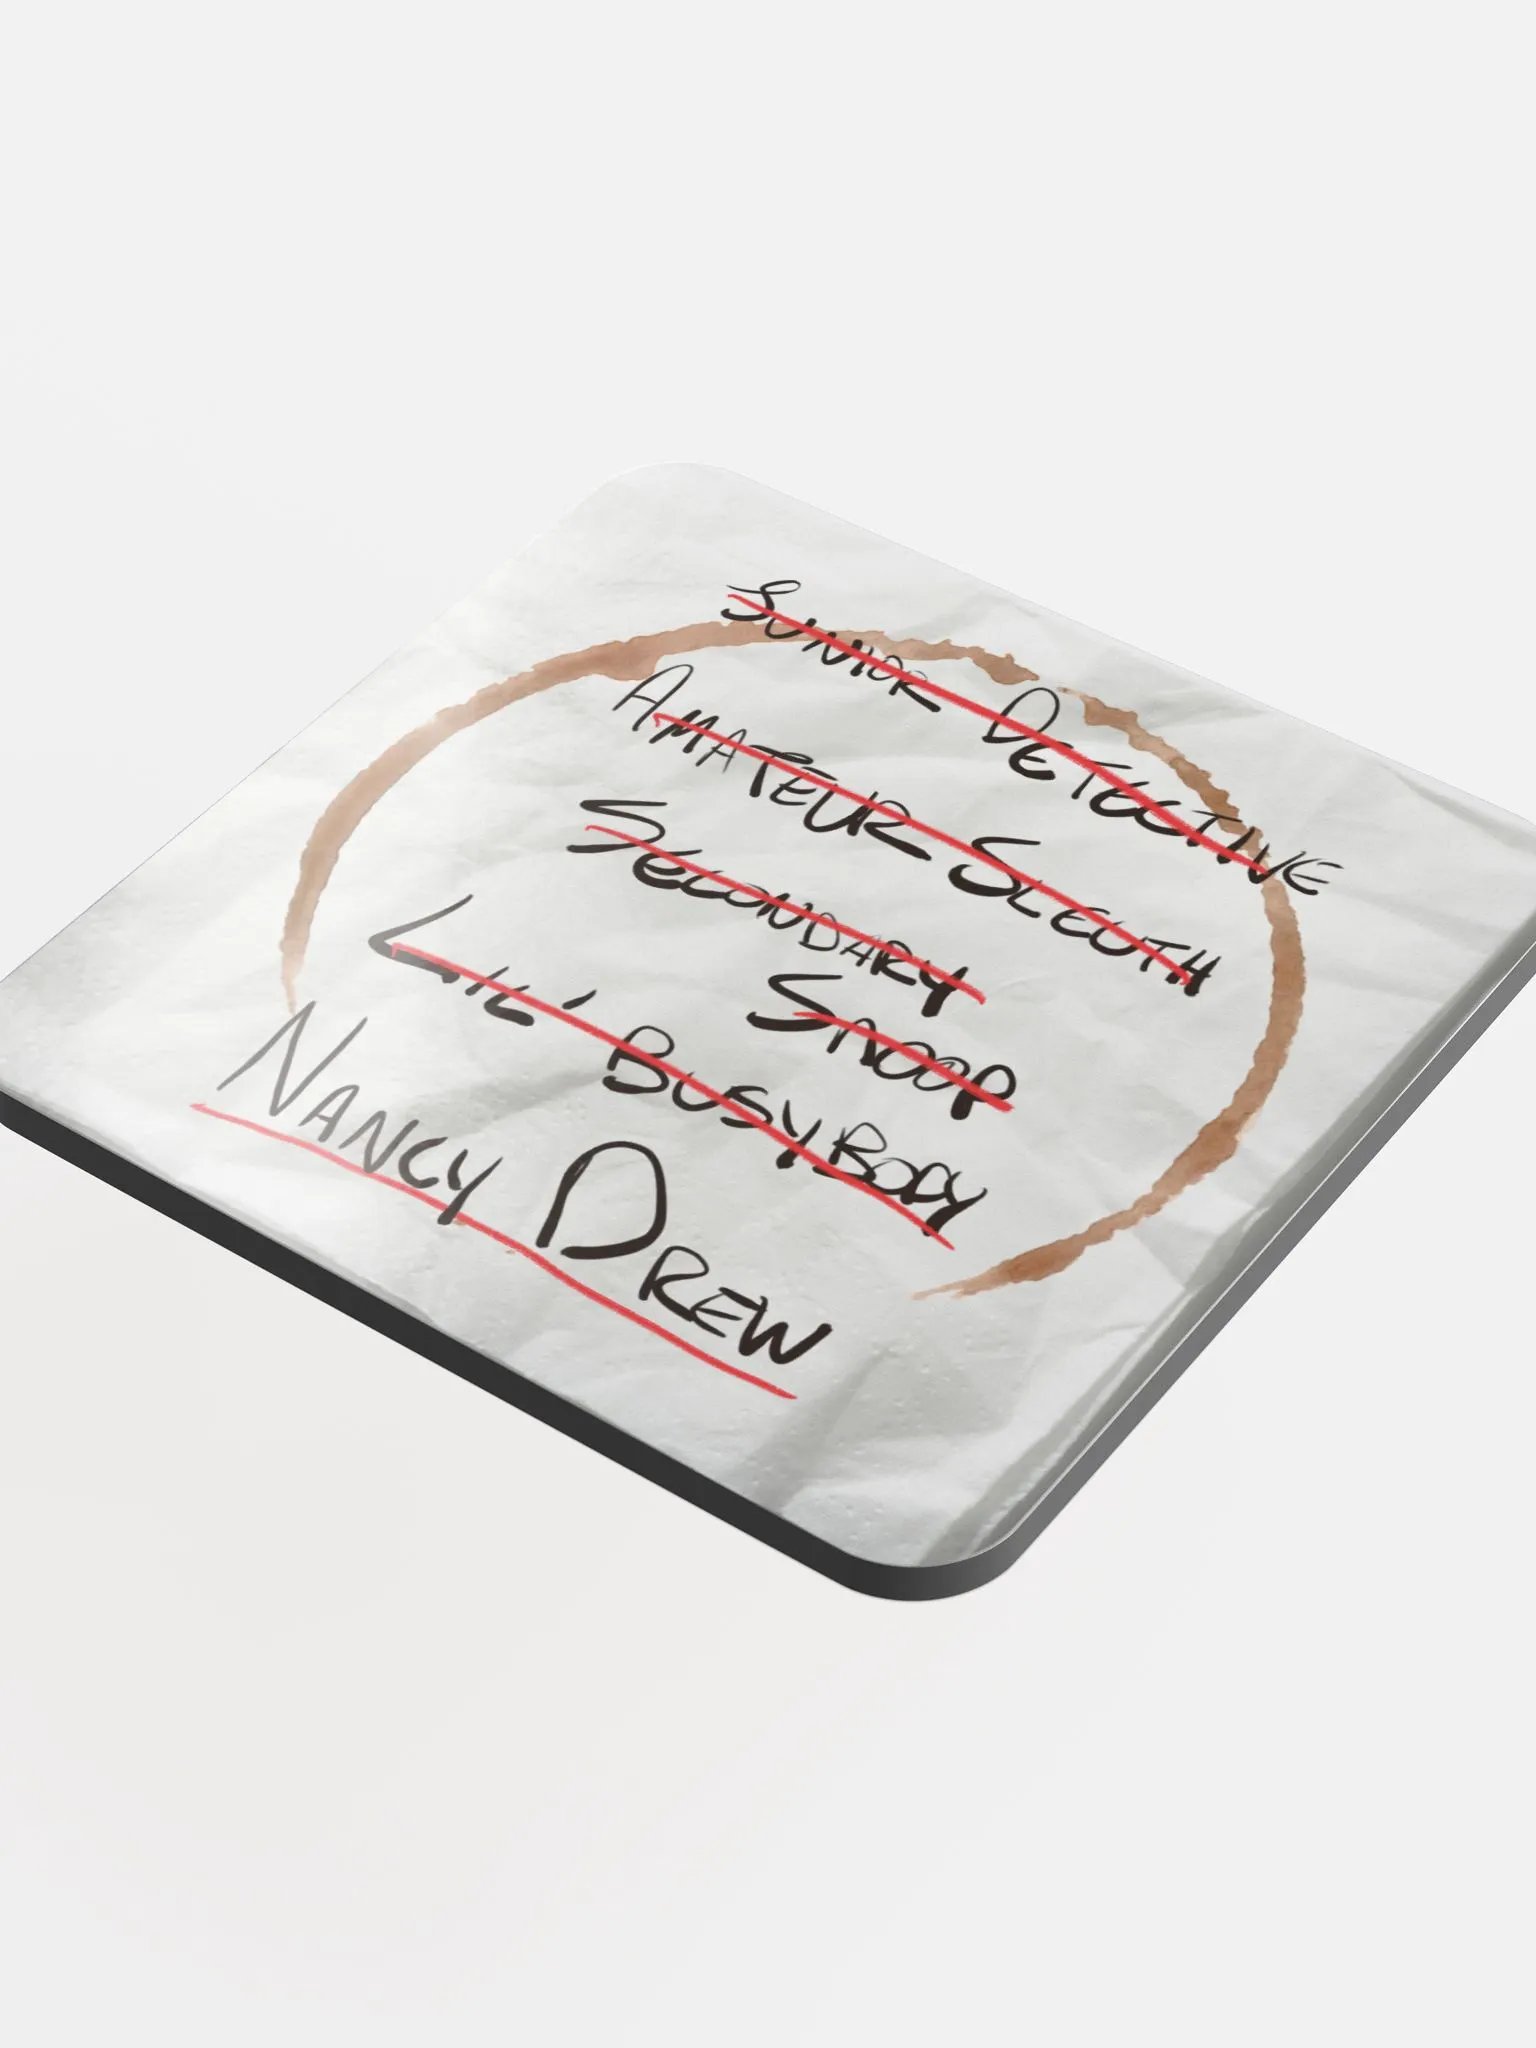 Junior Detective
Amateur Sleuth
Secondary
Snoop
Lil' Busybody
Nancy Drew